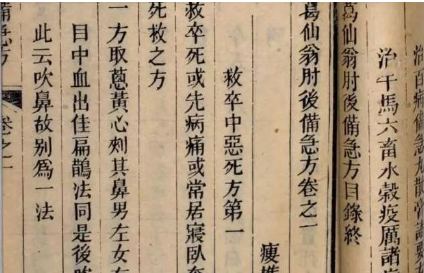 治百病備急丸散常諸要方
治牛馬六畜水穀疫厲諸
葛仙翁肘後備急方目錄終
葛仙翁肘後備急方卷之一
救卒中惡死方第一
救卒死或先病痛或常居寢臥奄
死救之方
一方取蔥黃心刺其鼻男左女右
目中血出佳扁鵲法同是後
此云吹鼻故別爲一法
備急方
卷之一